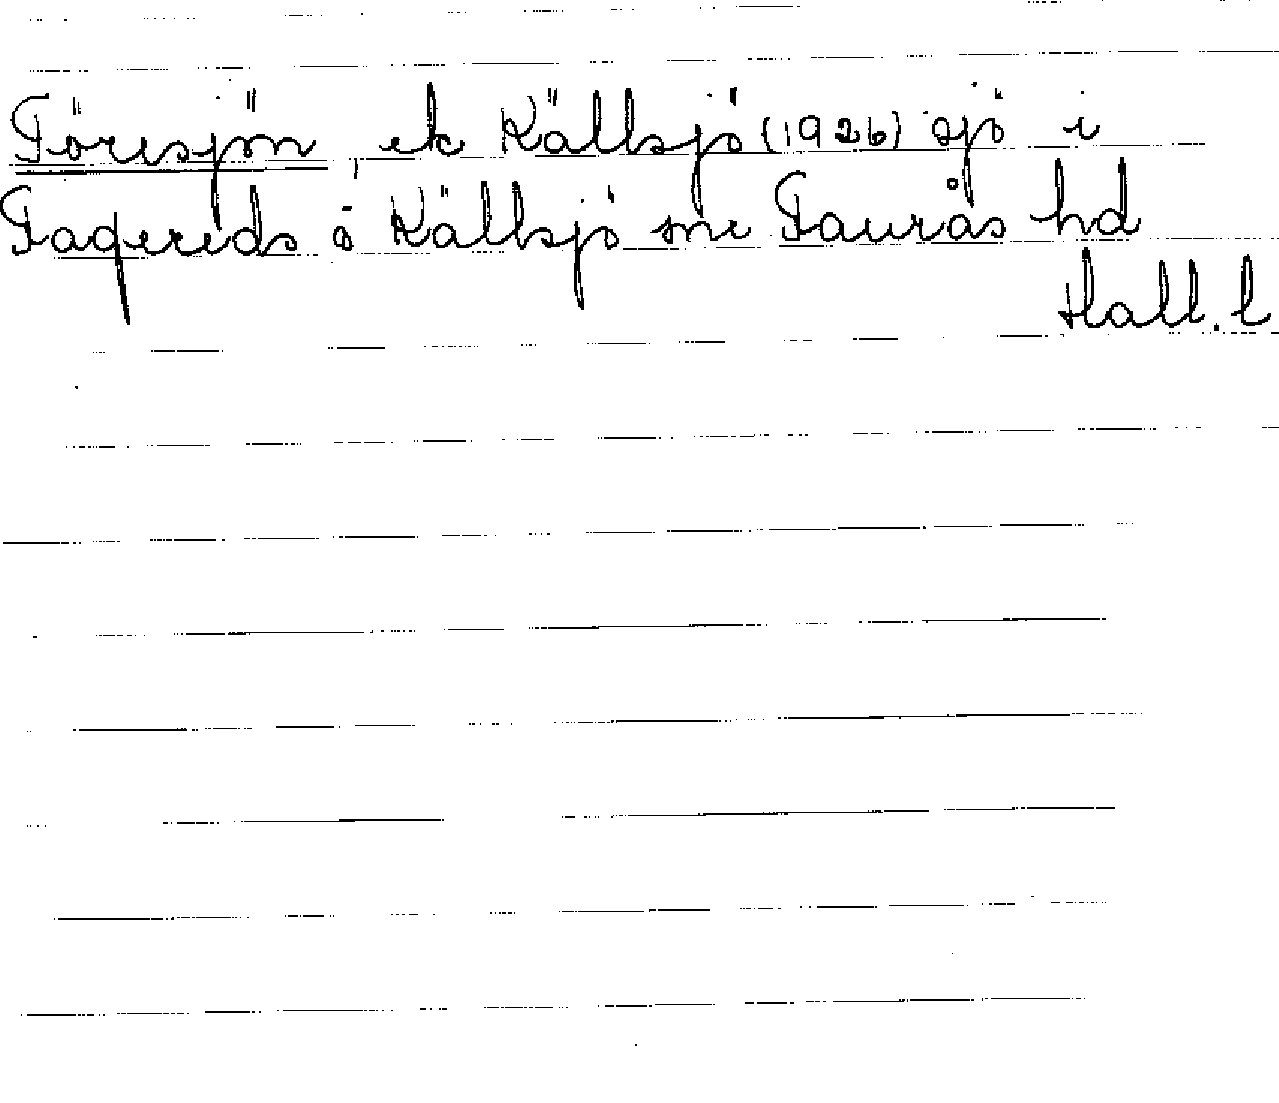 Töresjön, ek Källsjö (1926) sjö i
Fagereds o Källsjö snr Faurås hd
Hall. l